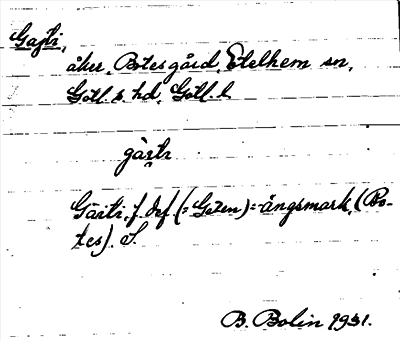 Gajti,
åker, Botes gård, Etelhem sn,
Gotl. s. hd, Gotl. l.
gàstr
f. def (= Geten) = ängsmark, (Bo-
tes). S.
B. Bolin 1931.